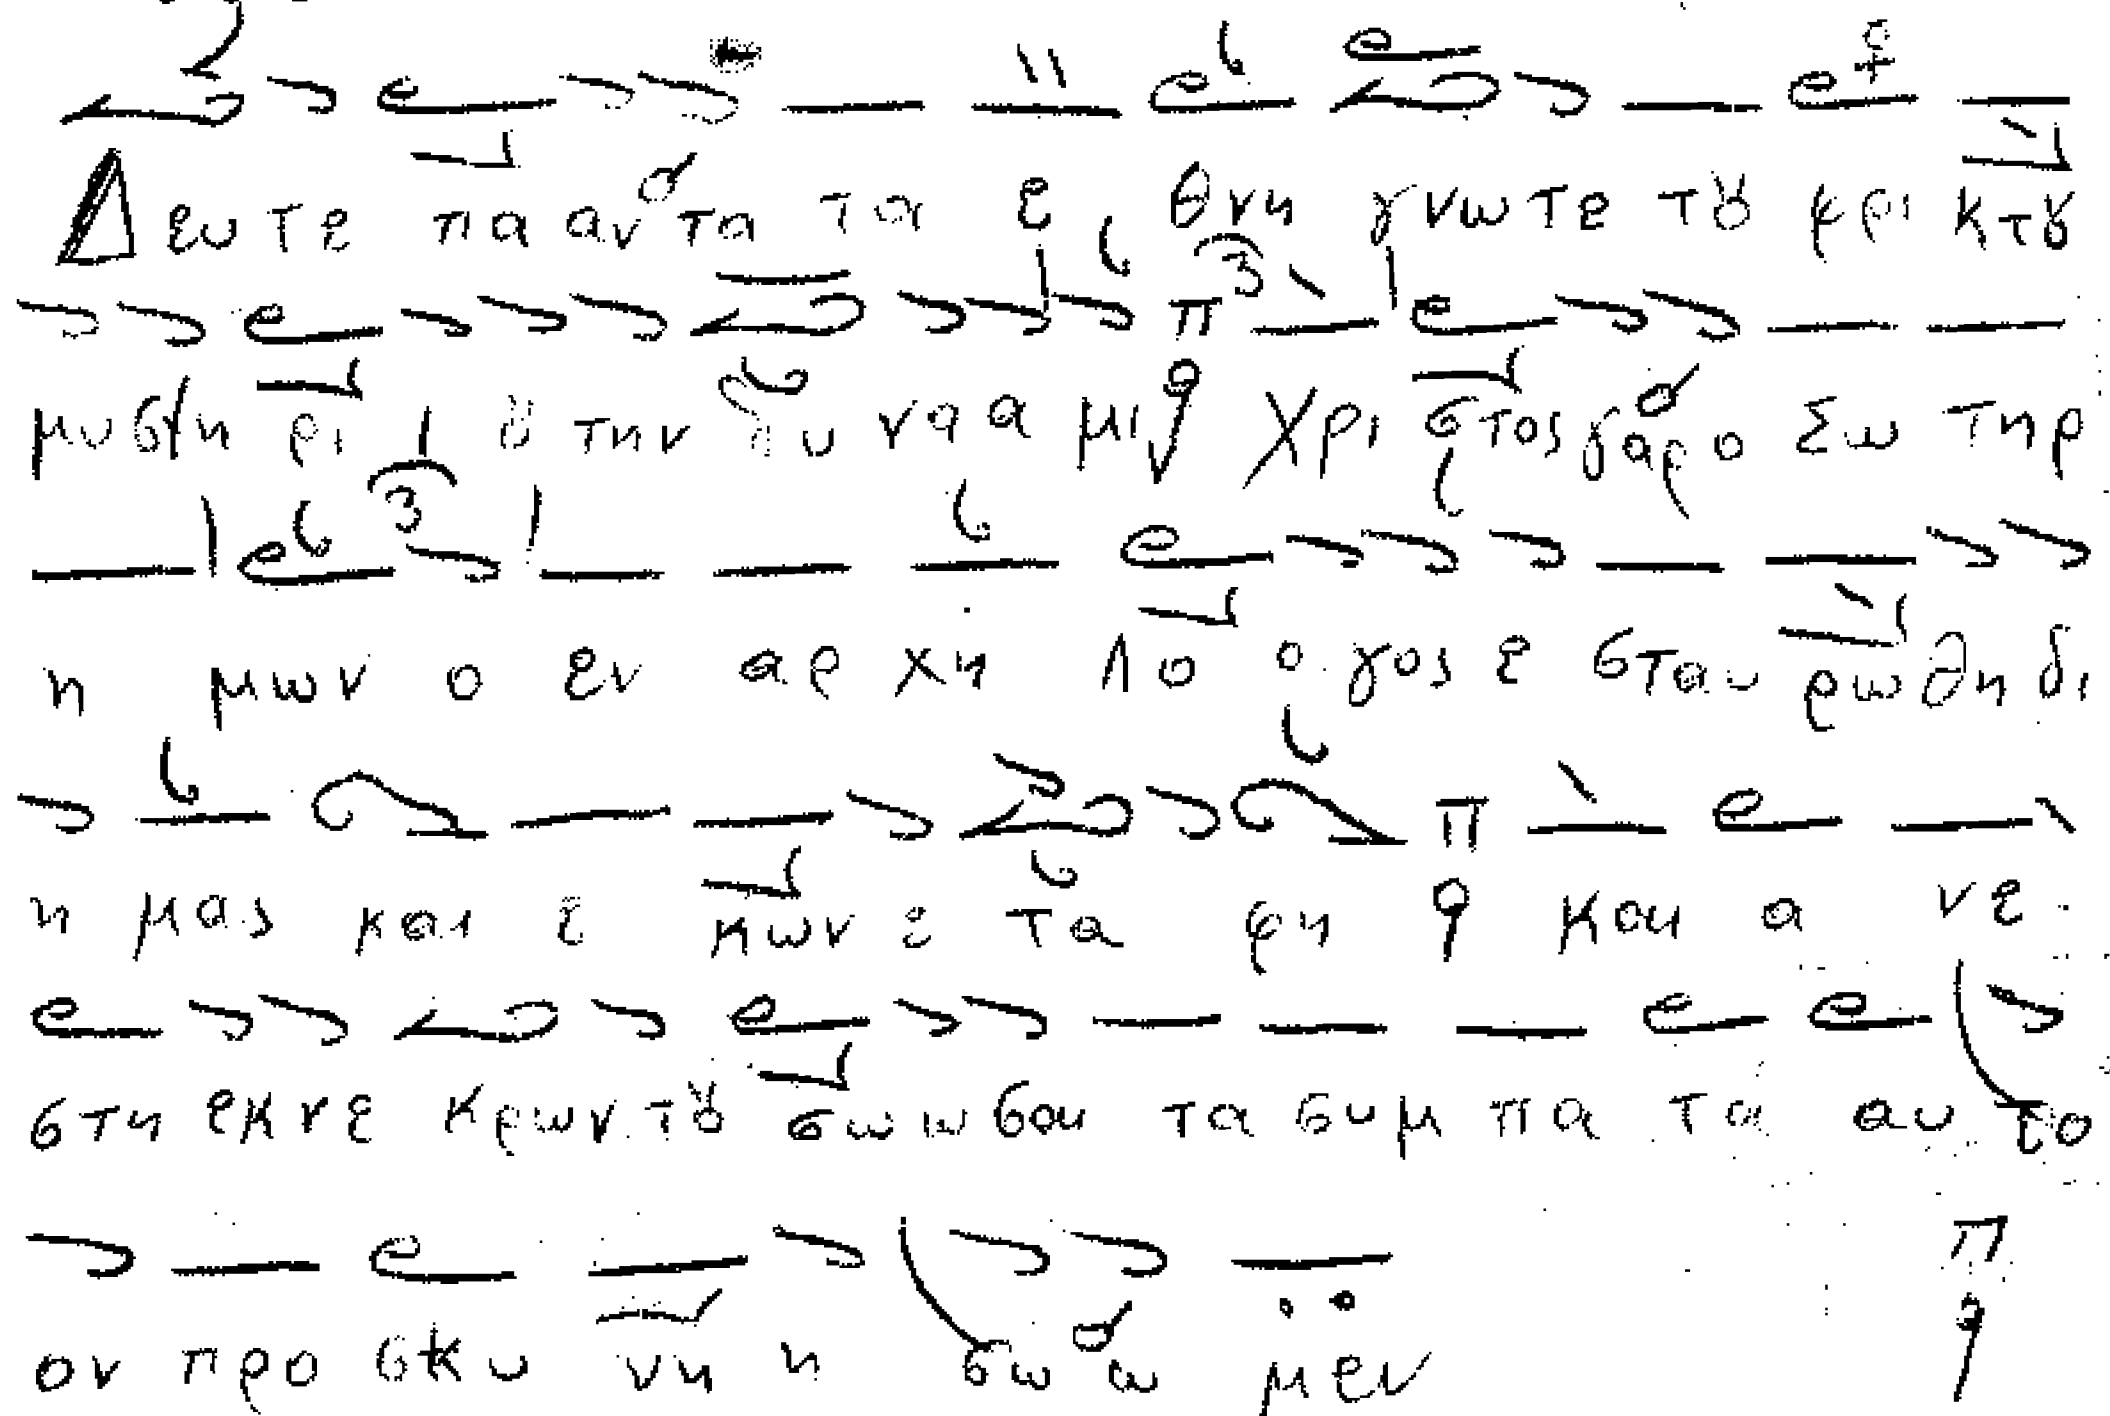 Δευ τε πα αν τα τα ε θνη γνω τε τȣ φρι κτȣ
μυ στη ρι ι ȣ την δυ να α μι χρι στος γαρ ο Σω τηρ
η μων ο εν αρ χη λο ο γος ε σταυ ρω θη δι
η μας και ε κων ε τα φη και α νε
στη εκ νε κρων τȣ σω ω σαι τα συμ πα τα αυ το
ον προ σκυ νη η σω ω μεν